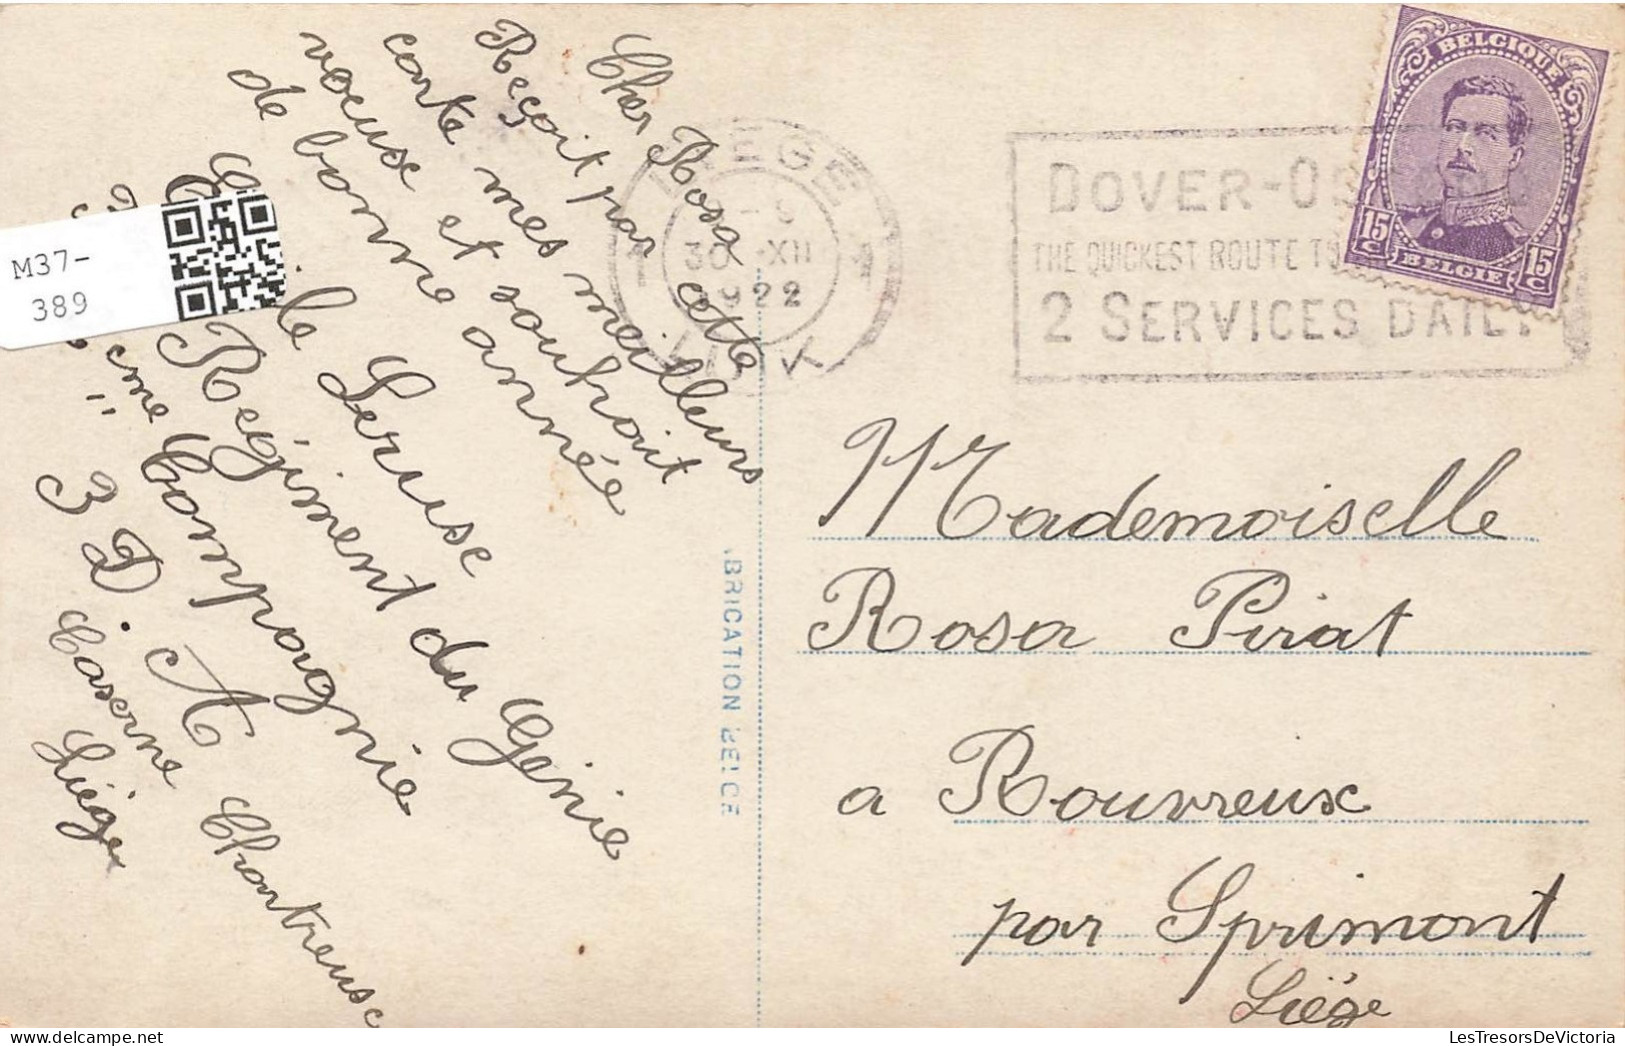 Cher Rosa
Reçoit par cette
carte mes meilleurs
voeuse et souhait
de bonne année
le Leruse
Regiment du Génie
cme Compagnie
3 D. A
Caserne Chartreuse
Liége
M37-
389
LIEGE
1 1
30 XII
1922
LUIK
DOVER-OS
THE QUICKEST ROUTE TO
2 SERVICES DAILY
BELGIQUE
15 C 15 C
BELGIE
BRICATION BELGE
Mademoiselle
Rosa Pirat
a Rouvreux
par Sprimont
Liége
LesTresorsDeVictoria